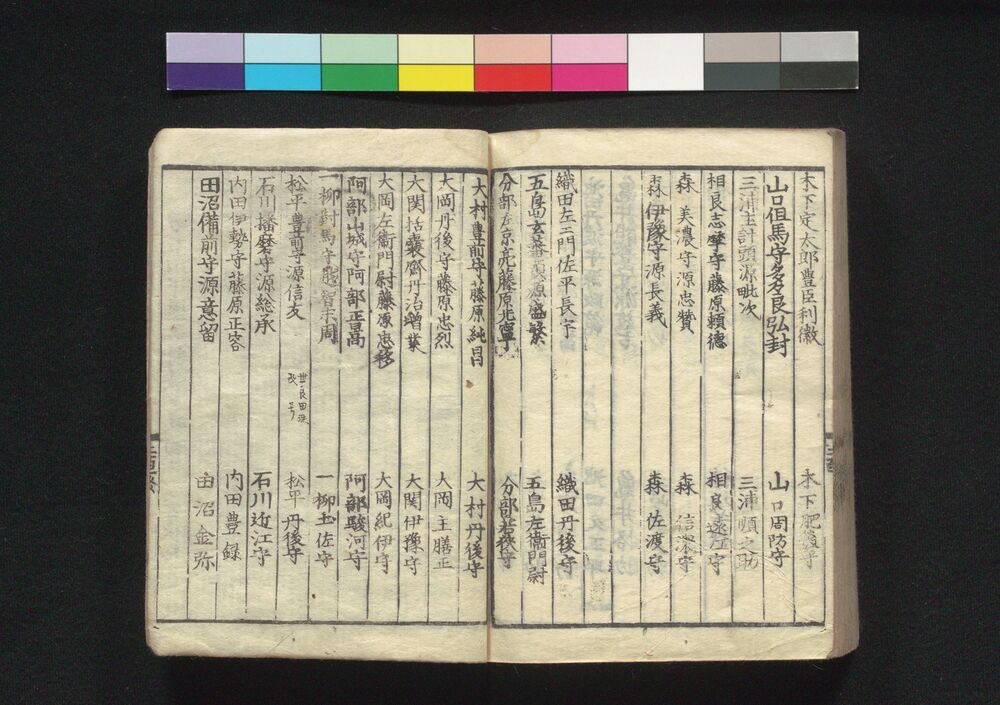 木下定太郎豊臣利徽 木下肥後守
山口但馬守多々良弘封 山口周防守
三浦主計頭源毗次 三浦順之助
相良志摩守藤原頼徳 相良遠江守
森 美濃守源忠贊 森
森 伊豫守源長義 森 佐渡守
織田左衛門佐平長宇 織田丹後守
五島 盛繁 五島左衛門尉
分部左京亮藤原光寧 分部若狭守
大村豊前守藤原純昌 大村丹後守
大岡丹後守藤原忠烈 大岡主膳正
大関括嚢齋丹治増業 大関伊豫守
大岡左衛門尉藤原忠移 大岡紀伊守
阿部山城守阿部正暠 阿部駿河守
一柳對馬守越智末周 一柳土佐守
松平豊前守源信友 松平丹後守
石川播磨守源総承 石川近江守
内田伊勢守藤原正容 内田豊録
田沼備前守源意留 田沼金弥